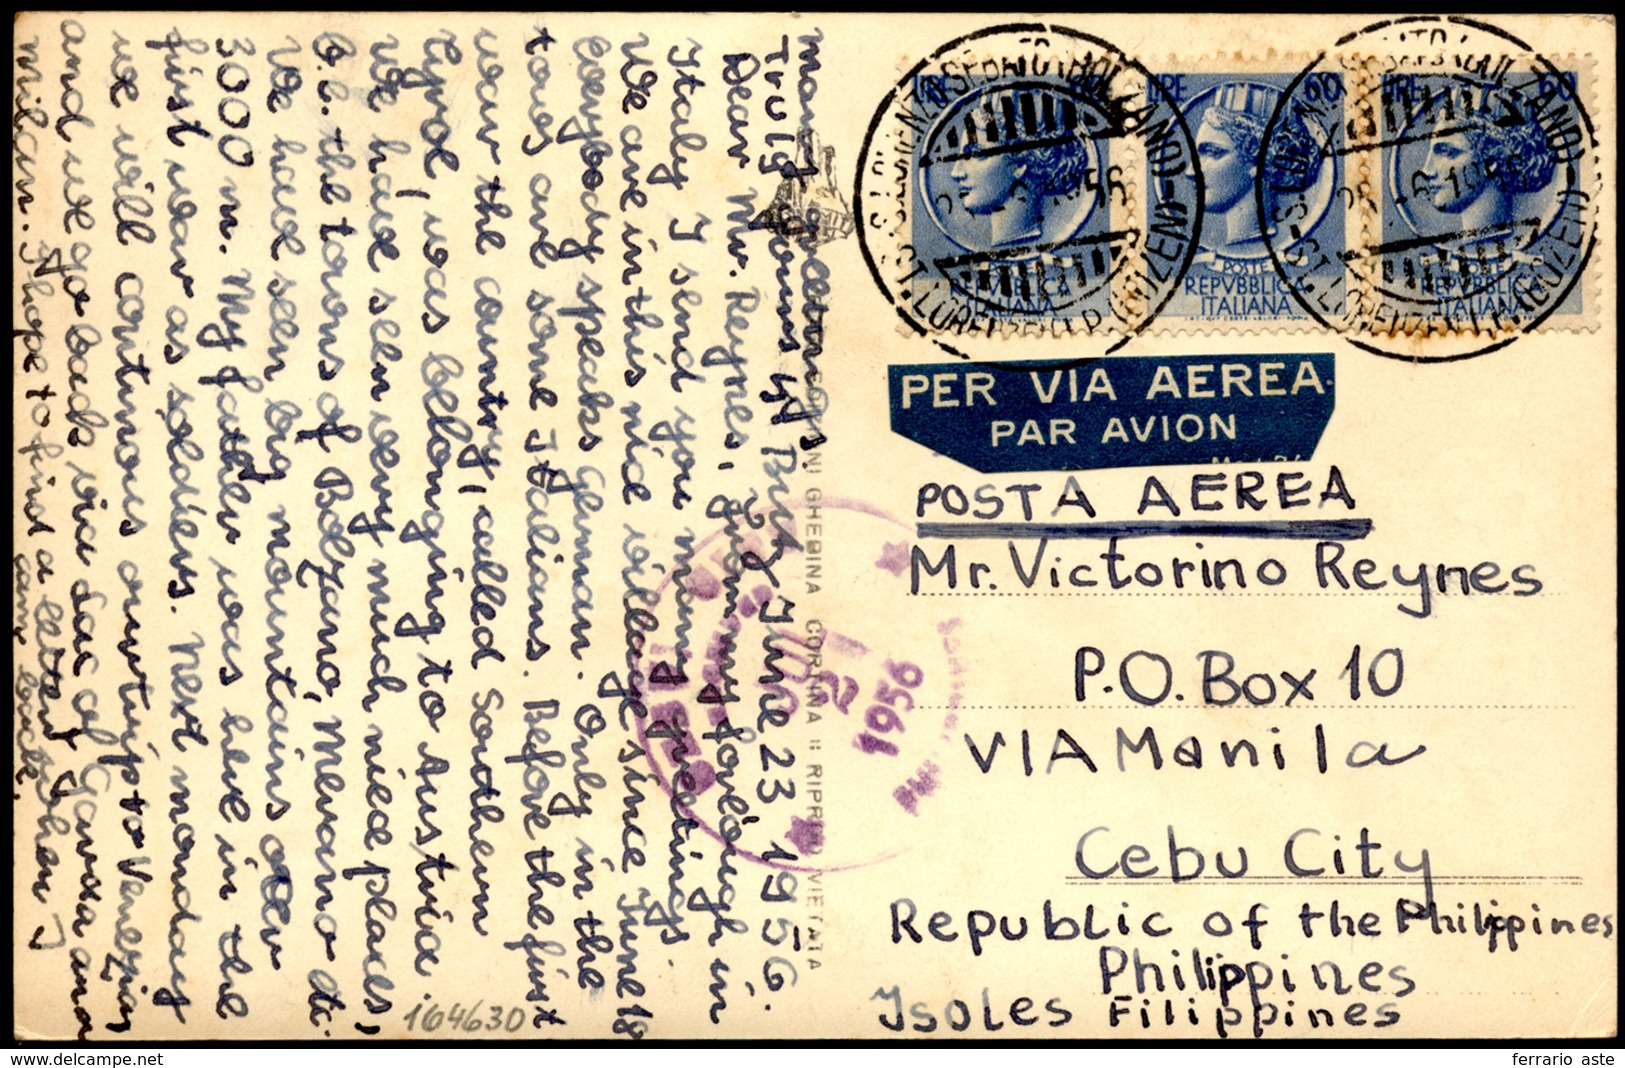 June 23 1956.
Dear Mr. Reynes, From my fourlough in
Italy I send you many greetings.
We are in this nice village since June 18
Everybody speaks German. Only in the
towns are some Italians. Before the first
war the country, called Southern
Tyrol, was belonging to Austria.
We have seen very much nice places,
We have seen big mountains over
3000 m. My father was here in the
first war as soldiers. Next monday
we will continous our trip to Venezia,
and we go back via Lac of Garda and
Milan. I hope to find a letter when I
came back.
Many greetings
Truly yours
GHEDINA CORTINA
VIETATA
164630
LIRE 60
POSTE
REPVBBLICA
ITALIANA
LIRE 60
POSTE
REPVBBLICA
ITALIANA
LIRE 60
REPVBBLICA
ITALIANA
S. LORENZO DI SEBATO (BOLZANO)
ST. LORENZEN
1956
PER VIA AEREA
PAR AVION
POSTA AEREA
Mr. Victorino Reynes
P.O. Box 10
VIA Manila
Cebu City
Republic of the Philippines
Philippines
Isoles Filippines
1956
ferrario aste